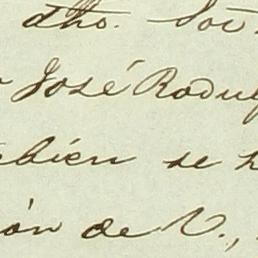 dho. Sor
José Rodul
mbién se h
ón de V.,